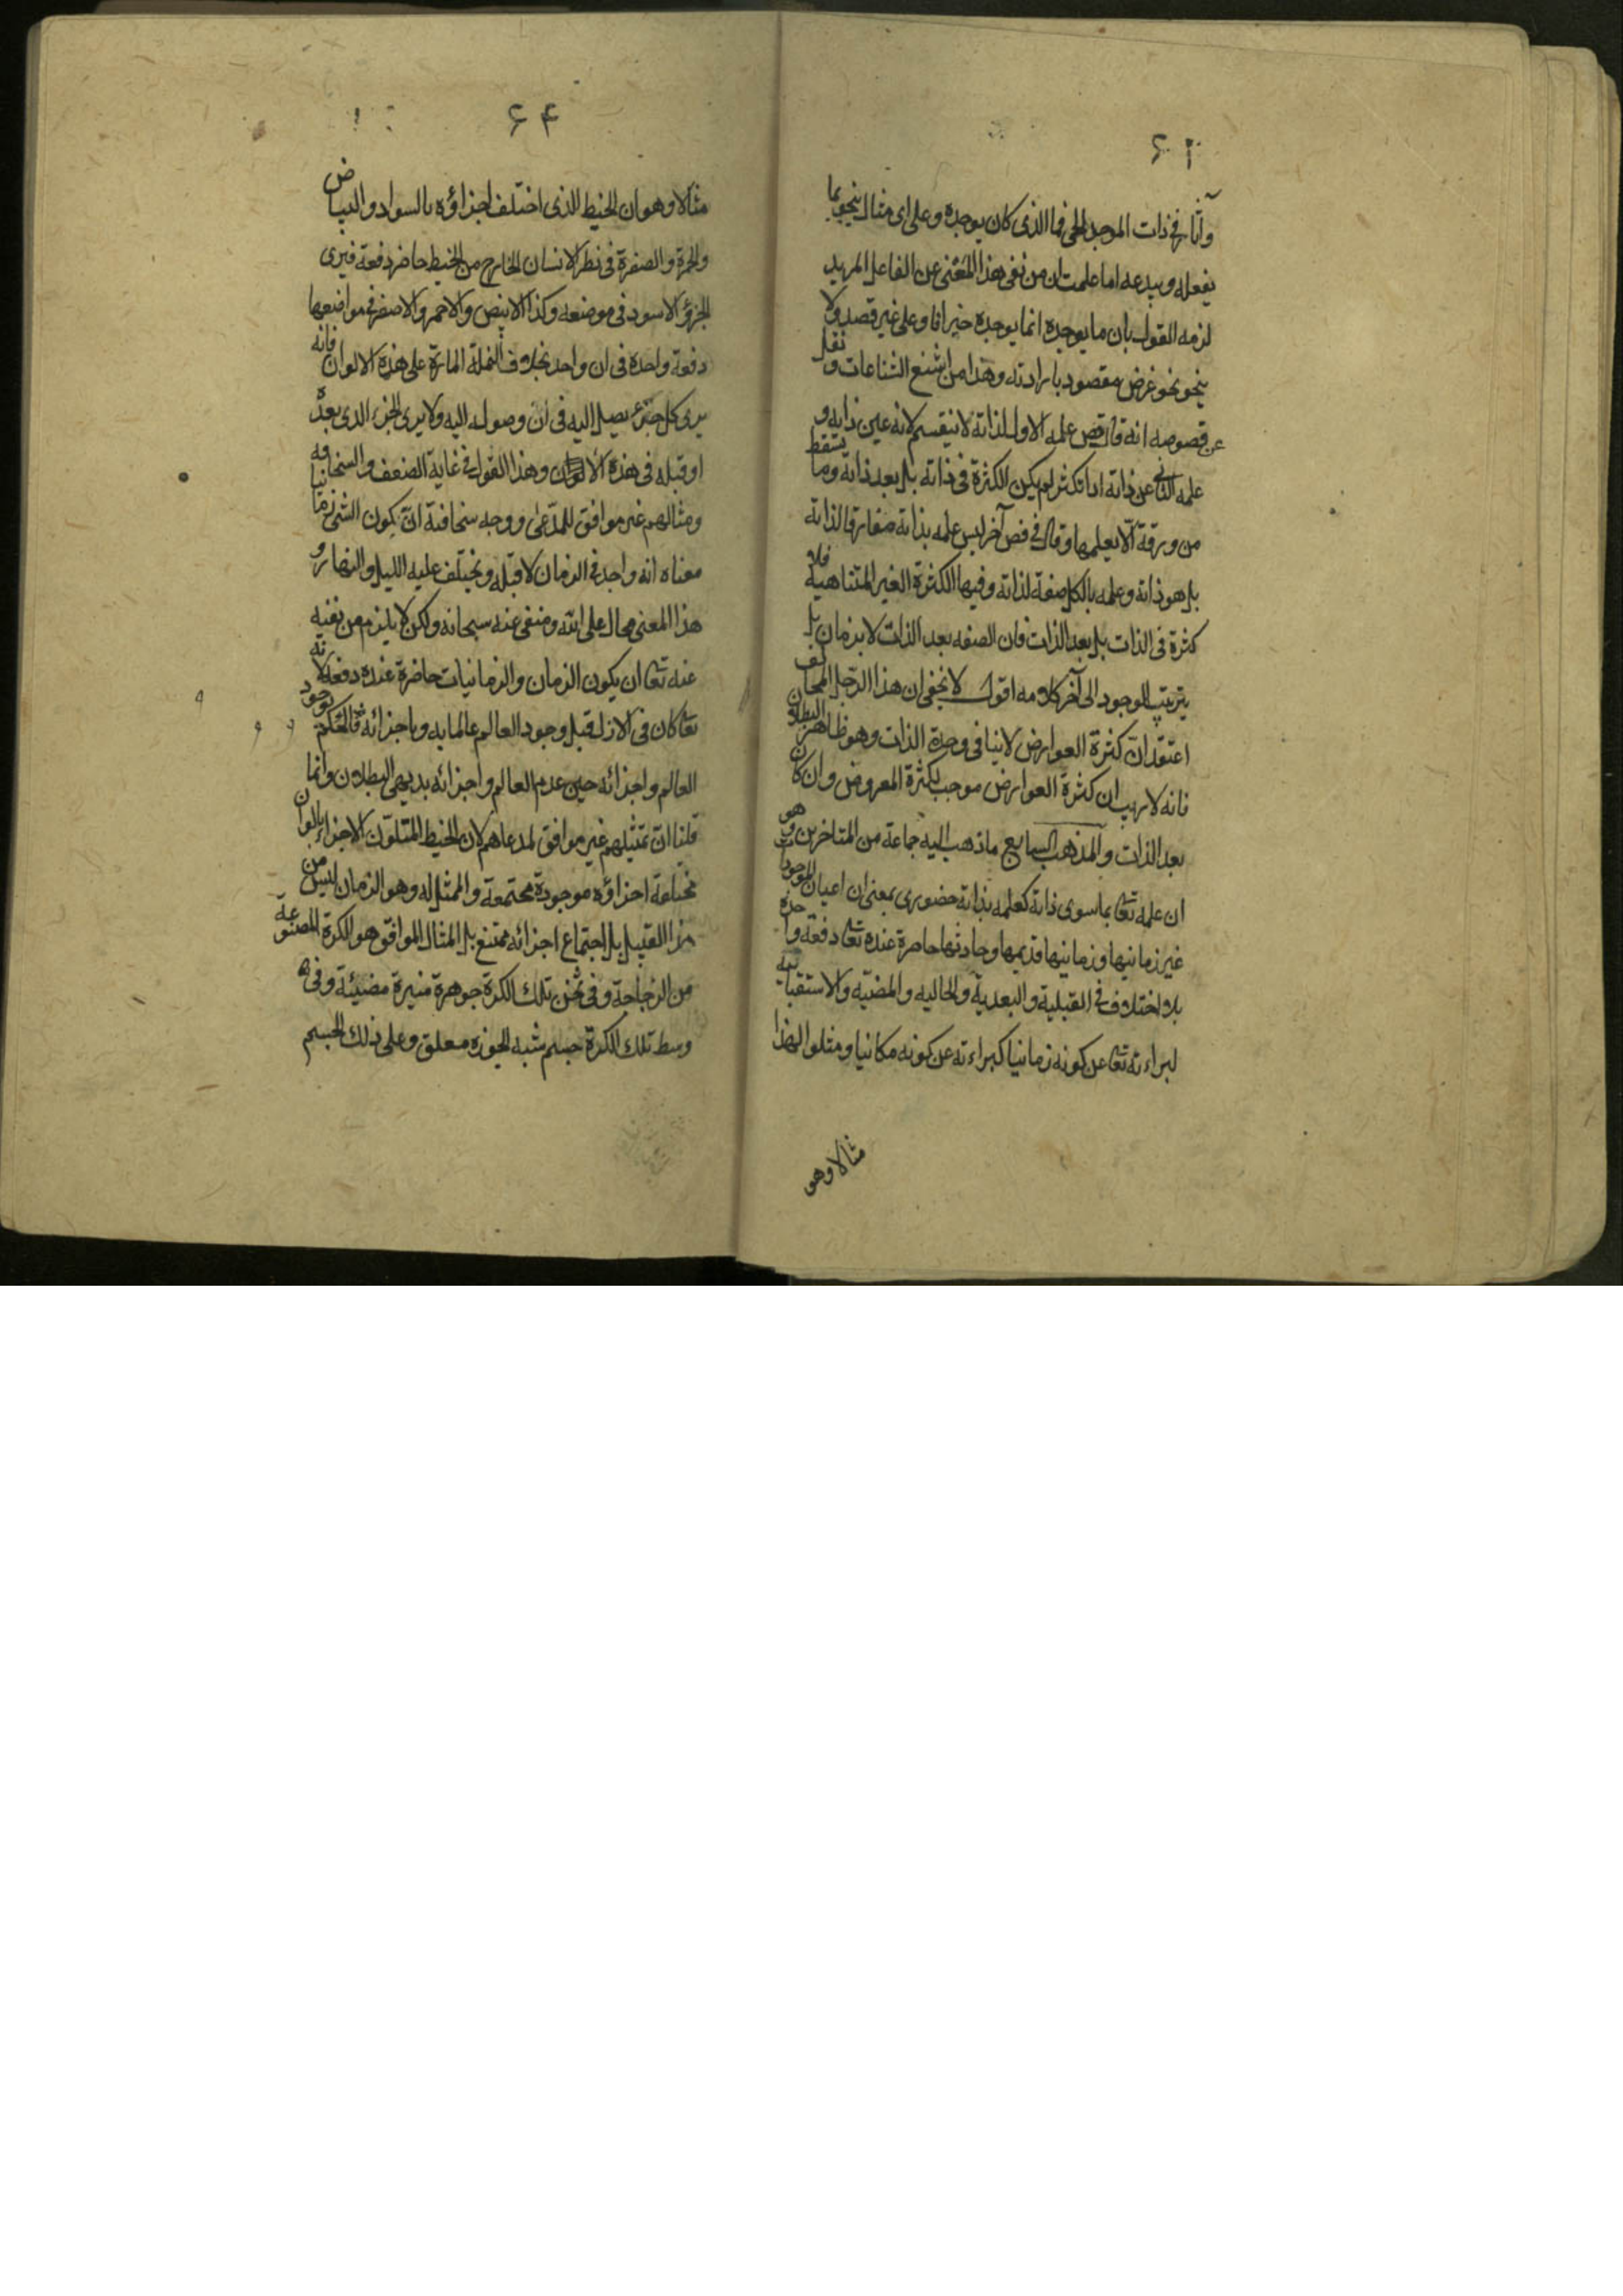 ٦٣
وآثارها في ذات الموجد الحي فما الذي كان يوجده وعلى اي مثال ينحو بما
يفعله ويبدعه اما علمت ان من نفي هذا المعنى عن الفاعل المريد
لزمه القول بان ما يوجده انما يوجده جزافا وعلى غير قصد ولا
ينحو نحو غرض مقصود بارادته وهذا من اشنع الشناعات و نقل
عن فصوصه انه قال فص علمه الاول لذاته لا ينقسم لانه عين ذاته و
علمه الثاني عن ذاته اذا تكثر لم يكن الكثرة في ذاته بل بعد ذاته وما تسقط
من ورقة الا يعلمها وقال في فص آخر ليس علمه بذاته مغايرا لذاته
بل هو ذاته وعلمه بالكل صفة لذاته وفيها الكثرة الغير المتناهية فلا
كثرة في الذات بل بعد الذات فان الصفه بعد الذات لا بزمان بل
بترتيب الوجود الى آخر كلامه اقول لا يخفى ان هذا الرجل المخالف
اعتقد ان كثرة العوارض لا ينافي وحدة الذات وهو ظاهر البطلان
فانه لا ريب ان كثرة العوارض موجب لكثرة المعروض وان كان
بعد الذات والمذهب السابع ما ذهب اليه جماعة من المتاخرين وهو
ان علمه تعا بما سوى ذاته كعلمه بذاته حضوري بمعنى ان اعيان الموجودات
غير زمانيها وزمانيها قديمها وحادثها حاضرة عنده تعا دفعة واحدة
بلا اختلاف في القبلية والبعدية والحاليه والمضيه والاستقبالية
لبراءته تعا عن كونه زمانيا كبراءته عن كونه مكانيا ومثلوا لهذا
مثالا وهو
٦٤
مثالا وهو ان الخيط الذي اختلف اجزاؤه بالسواد والبياض
والحمرة والصفرة في نظر الانسان الخارج من الخيط حاضر دفعة فيرى
الجزؤ الاسود في موضعه وكذا الابيض والاحمر والاصفر في مواضعها
دفعة واحدة في ان واحد بخلاف النملة المارة على هذه الالوان فانه
يرى كل جزء يصل اليه في ان وصوله اليه ولا يرى الجزء الذي بعده
او قبله في هذه الالوان وهذا القول في غاية الضعف والسخافه
ومثالهم غير موافق للمدعى ووجه سخافته ان كون الشئ زمانيا
معناه انه واجد في الزمان لا قبله ويختلف عليه الليل والنهار و
هذا المعنى محال على الله ومنفي عنه سبحانه ولكن لا يلزم من نفيه
عنه تعا ان يكون الزمان والزمانيات حاضرة عنده دفعه لانه
تعا كان في الازل قبل وجود العالم عالما به وباجزائه فالحكم بوجود
العالم واجزائه حين عدم العالم واجزائه بديهي البطلان وانما
قلنا ان تمثيلهم غير موافق لمدعاهم لان الخيط المتلون الاجزاء بالوان
مختلفة اجزاؤه موجودة مجتمعة والممثل له وهو الزمان ليس من
هذا القبيل بل اجتماع اجزائه ممتنع بل المثال الموافق هو الكرة المصنوعة
من الزجاجة وفي ثخن تلك الكرة جوهرة منيرة مضيئة وفي
وسط تلك الكرة جسم شبه الجوزه معلق وعلى ذلك الجسم